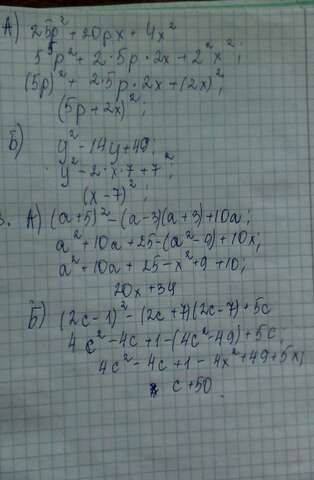 А) 25p² + 20px + 4x²
5²p² + 2·5p·2x + 2²x²;
(5p)² + 2·5p·2x + (2x)²;
(5p + 2x)²;
Б) y² - 14y + 49;
y² - 2·x·7 + 7²;
(x - 7)²;
3. А) (a+5)² - (a-3)(a+3) + 10a;
a² + 10a + 25 - (a² - 9) + 10x;
a² + 10a + 25 - x² + 9 + 10;
20x + 34
Б) (2c-1)² - (2c+7)(2c-7) + 5c
4c² - 4c + 1 - (4c² - 49) + 5c;
4c² - 4c + 1 - 4x² + 49 + 5x;
c + 50.